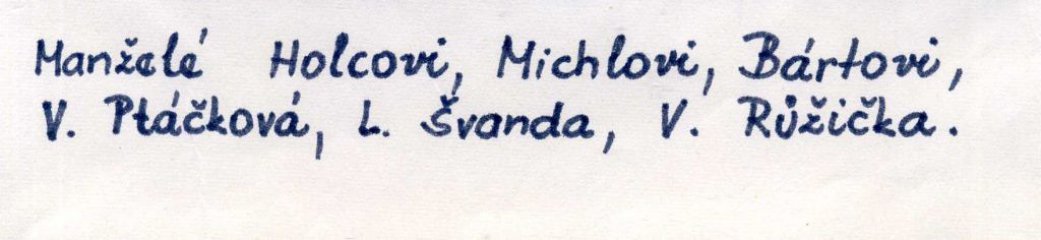 Manželé Holcovi, Michlovi, Bártovi,
V. Ptáčková, L. Švanda, V. Růžička.